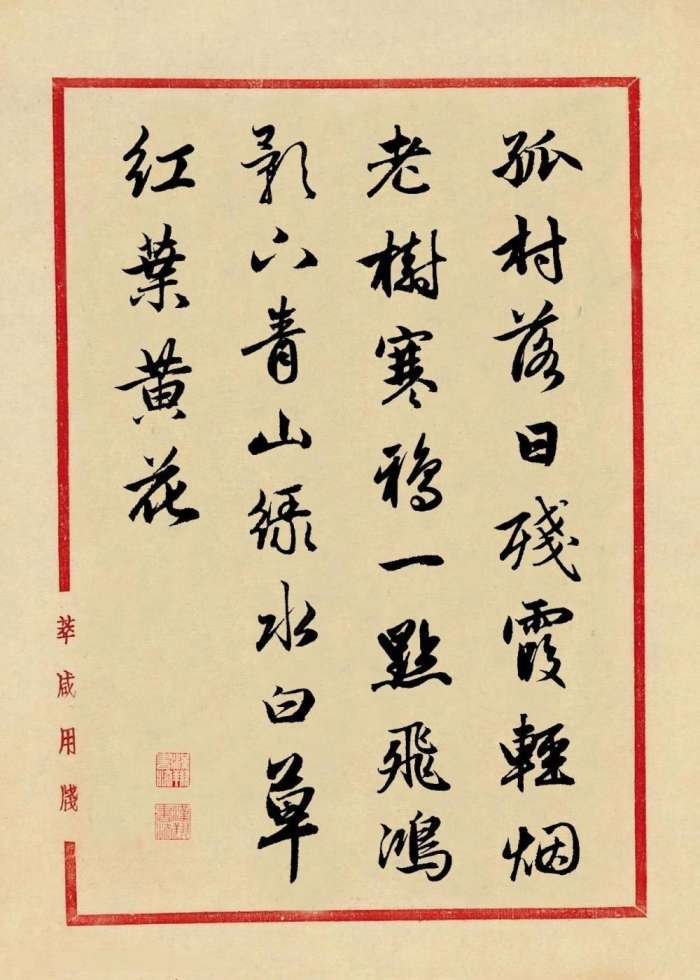 孤村落日殘霞輕烟
老樹寒鴉一點飛鴻
影下青山綠水白草
紅葉黄花
萃咸用牋